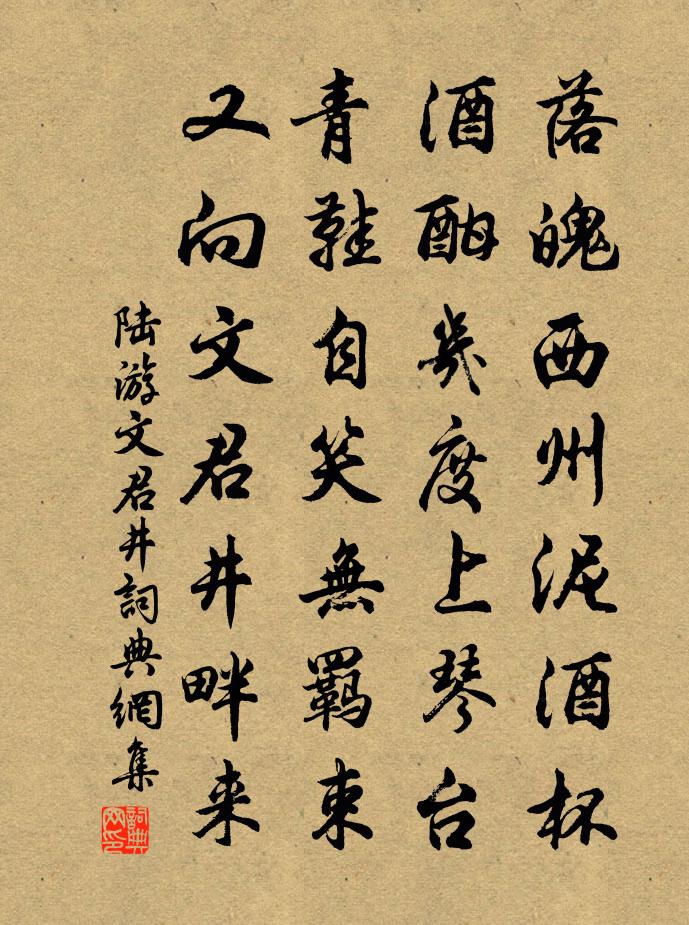 落魄西州泥酒杯
酒酣幾度上琴台
青鞋自笑無羈束
又向文君井畔来
陸游文君井詞典網集
詞典网印